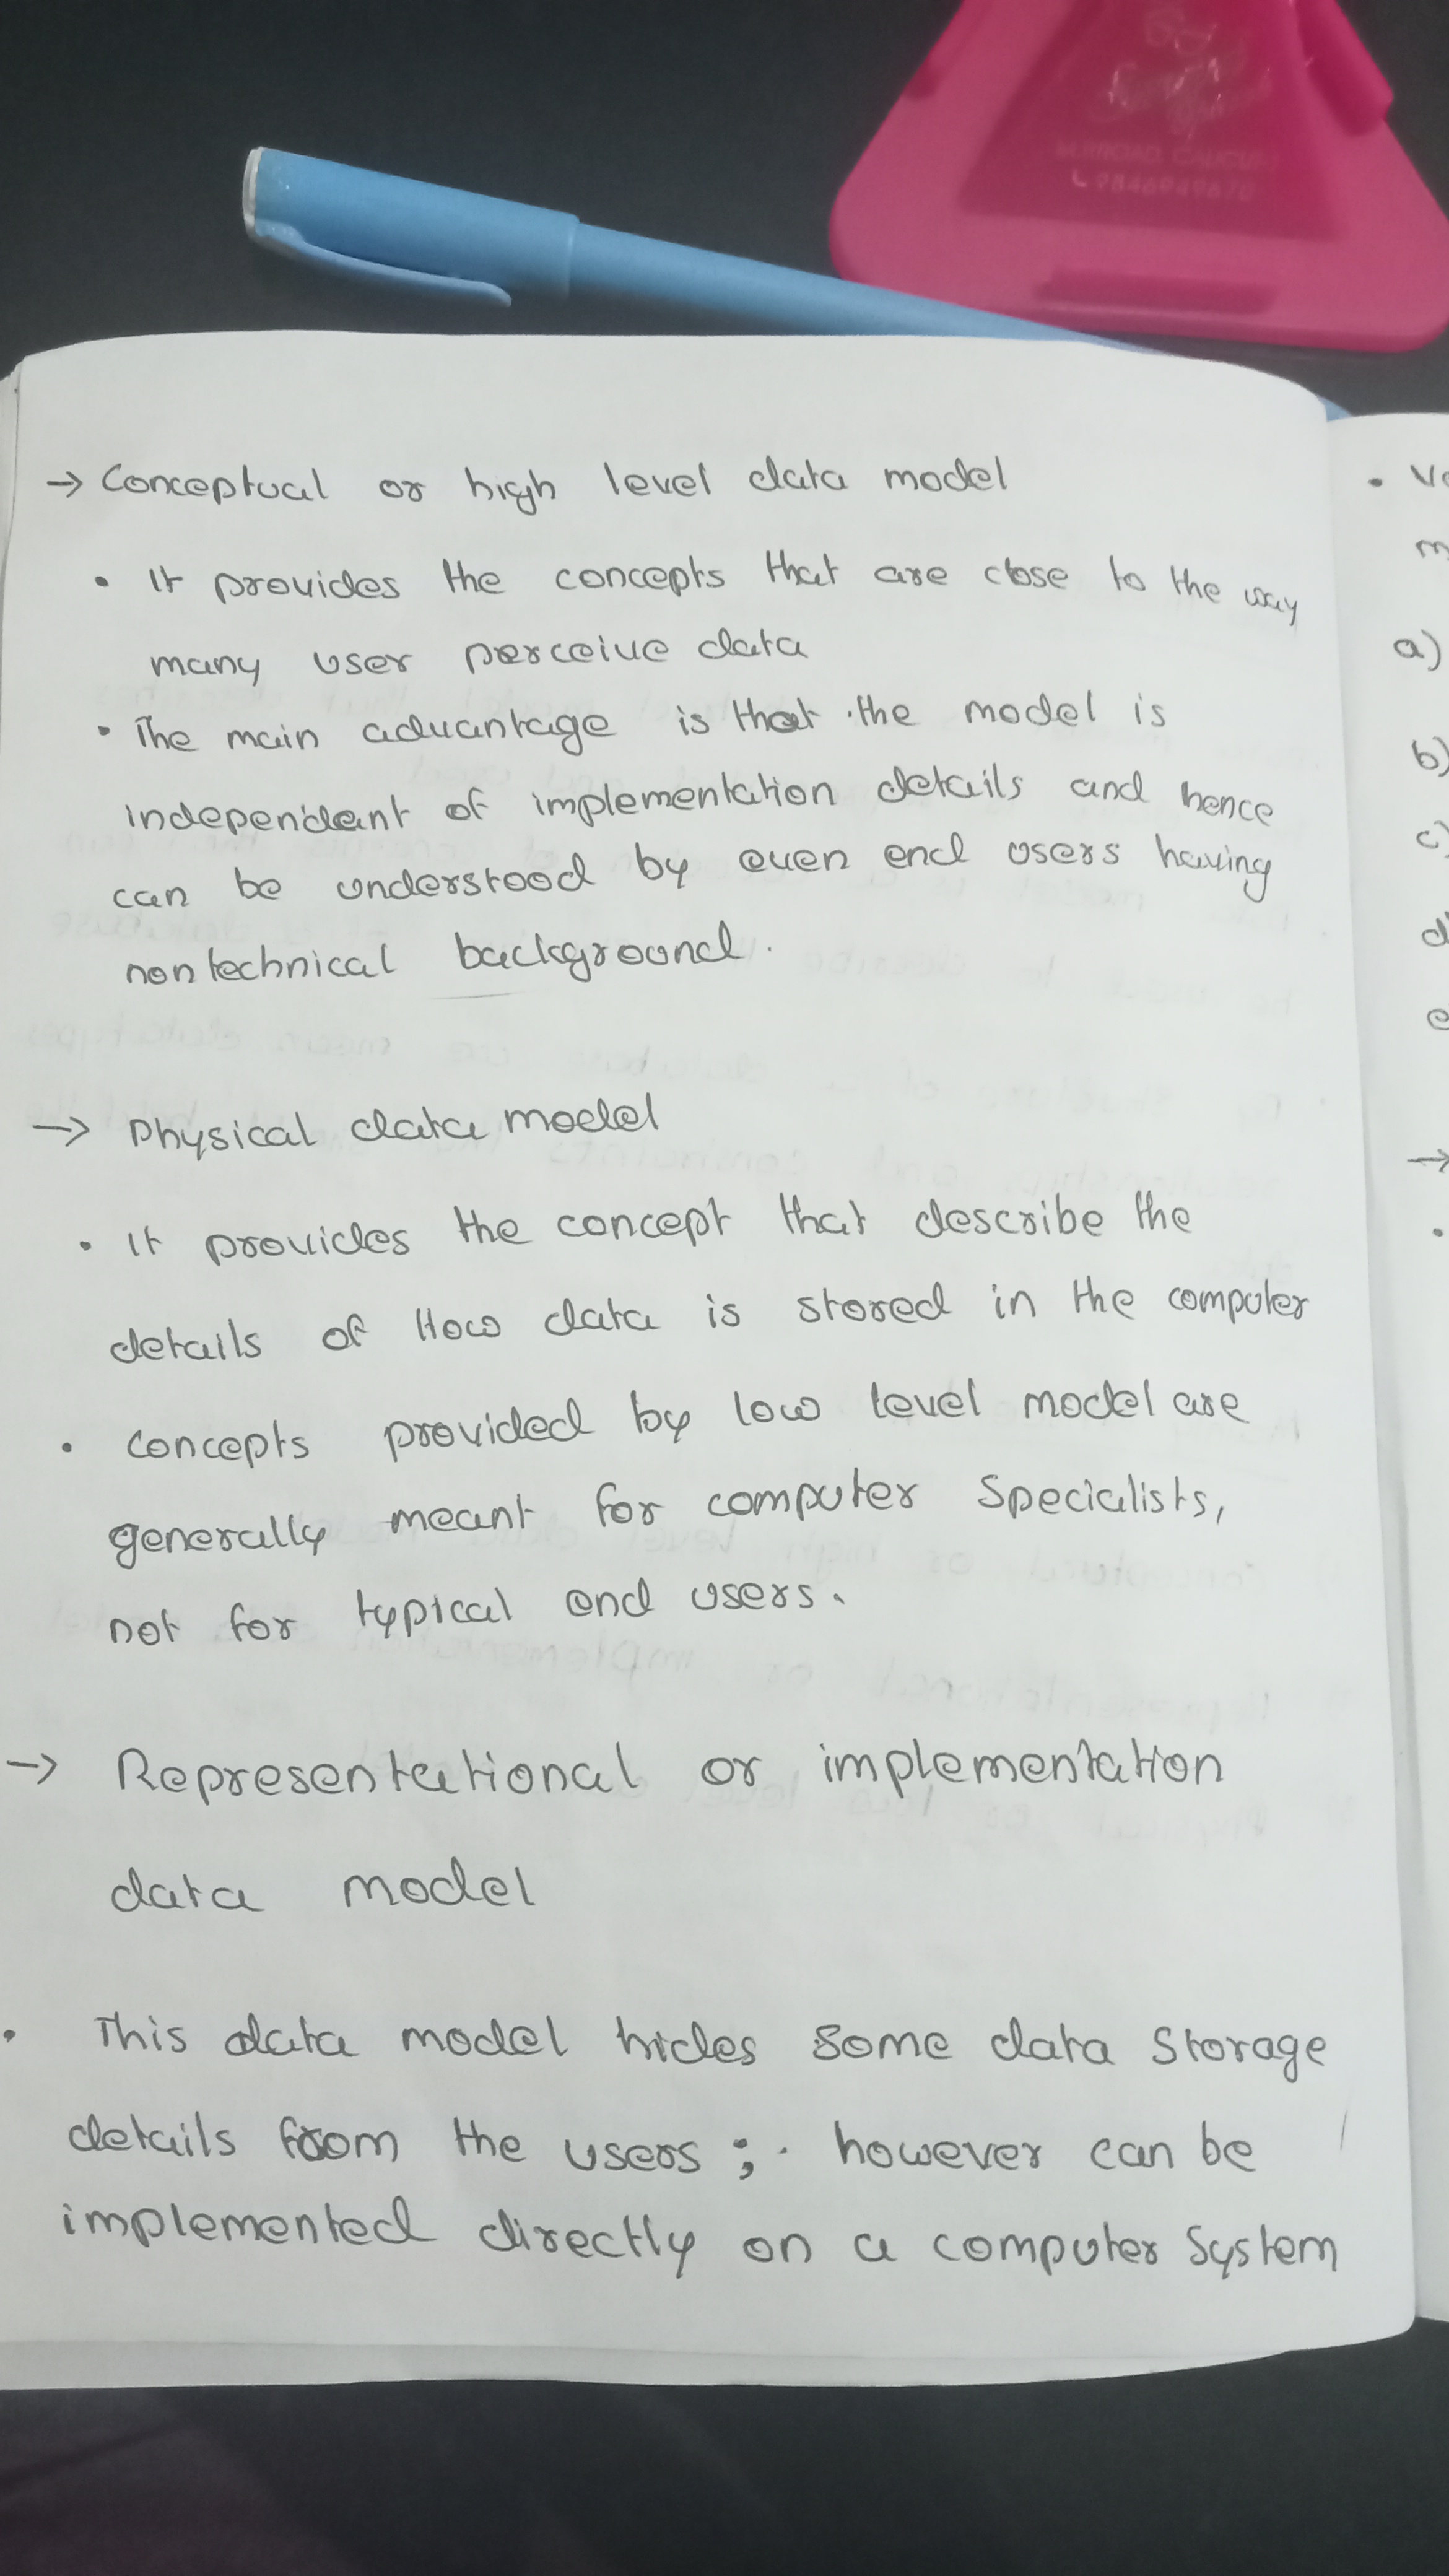 → Conceptual or high level data model
• It provides the concepts that are close to the way
many user perceive data
• The main advantage is that the model is
independent of implementation details and hence
can be understood by even end users having
non technical background.
→ Physical data model
• It provides the concept that describe the
details of How data is stored in the computer
• concepts provided by low level model are
generally meant for computer Specialists,
not for typical end users.
→ Representational or implementation
data model
• This data model hides some data storage
details from the users; however can be
implemented directly on a computer System
a)
b)
c)
d)
e
→
9846949670